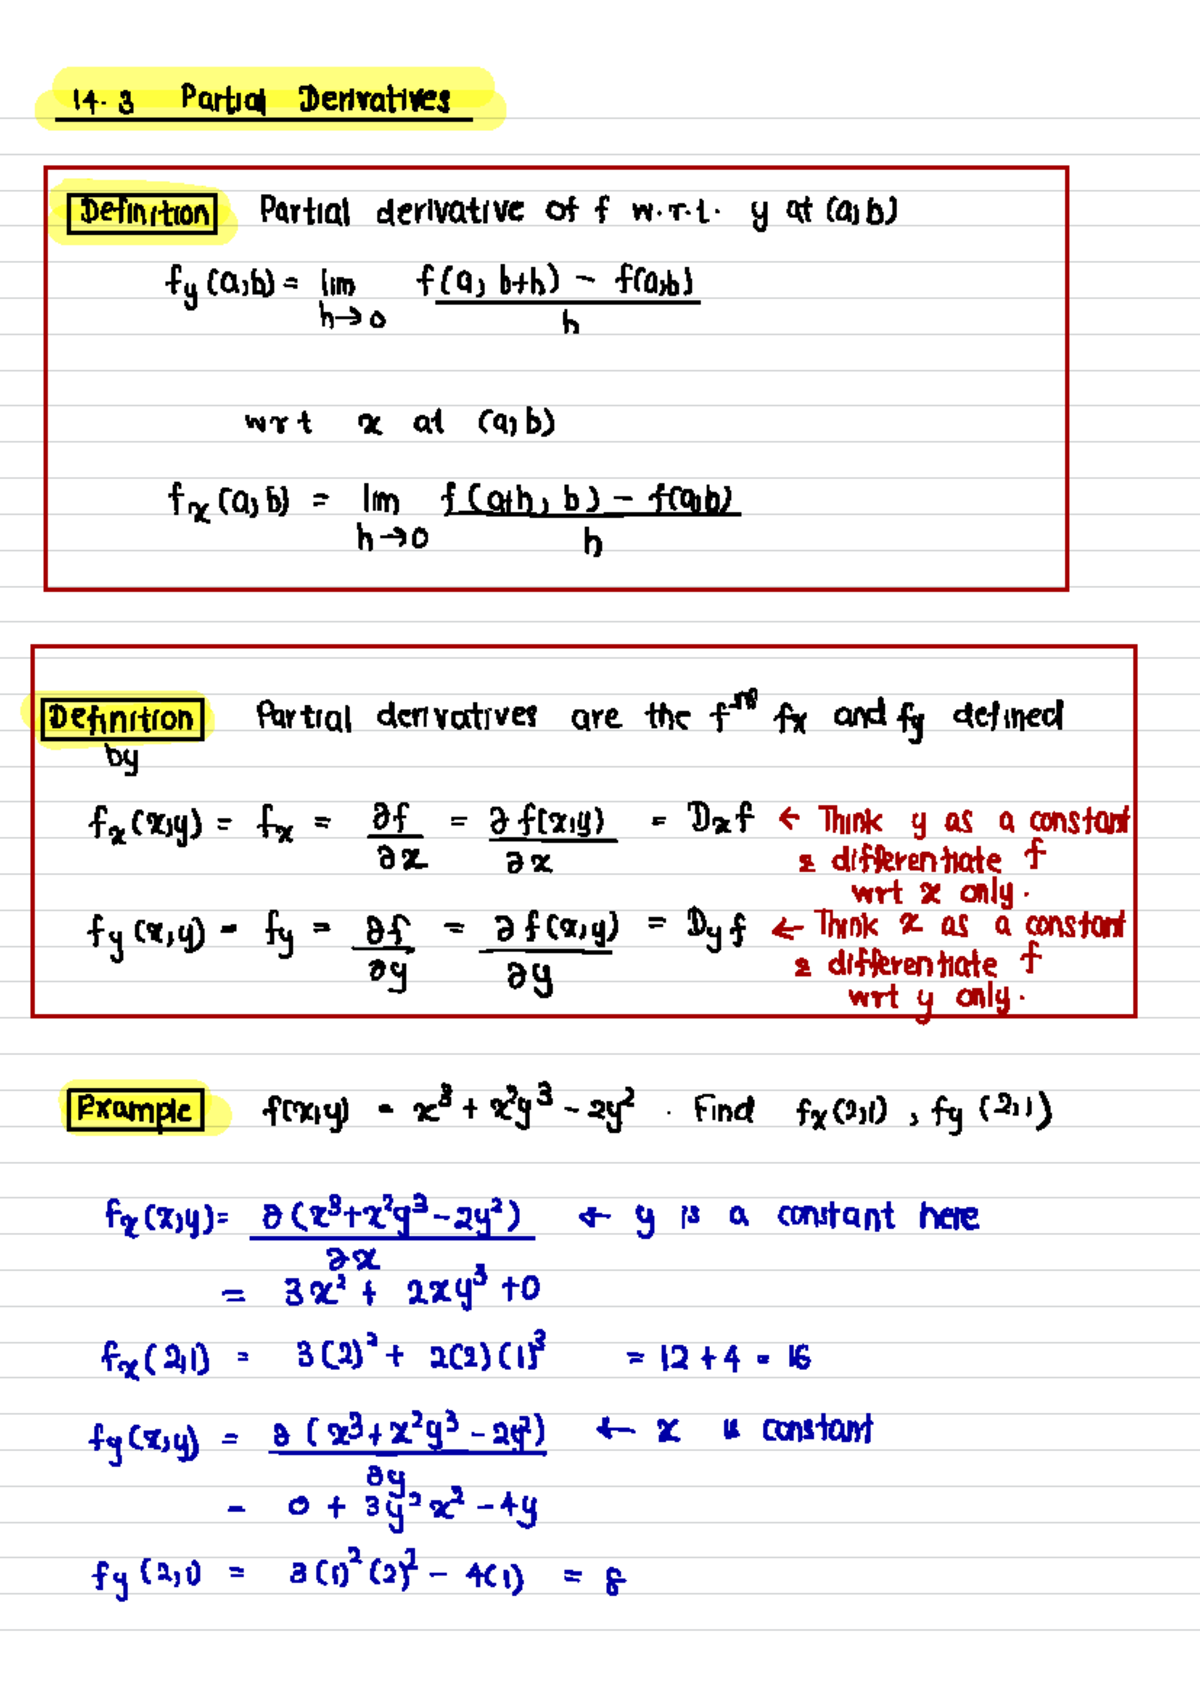 14.3 Partial Derivatives
Definition Partial derivative of f w.r.t. y at (a,b)
fy (a,b) = lim f(a, b+h) - f(a,b)
h→0 h
wrt x at (a,b)
fx (a,b) = lim f(a+h, b) - f(a,b)
h→0 h
Definition Partial derivatives are the fⁿˢ fx and fy defined
by
fx(x,y) = fx = ∂f = ∂f(x,y) = Dxf ← Think y as a constant
∂x ∂x & differentiate f
wrt x only.
fy(x,y) = fy = ∂f = ∂f(x,y) = Dyf ← Think x as a constant
∂y ∂y & differentiate f
wrt y only.
Example f(x,y) = x³ + x²y³ - 2y² . Find fx(2,1) , fy (2,1)
fx(x,y) = ∂(x³+x²y³-2y²) ← y is a constant here
∂x
= 3x² + 2xy³ +0
fx(2,1) = 3(2)² + 2(2)(1)³ = 12 + 4 = 16
fy(x,y) = ∂(x³+x²y³-2y²) ← x is constant
∂y
= 0 + 3y²x² - 4y
fy (2,1) = 3(1)²(2)² - 4(1) = 8